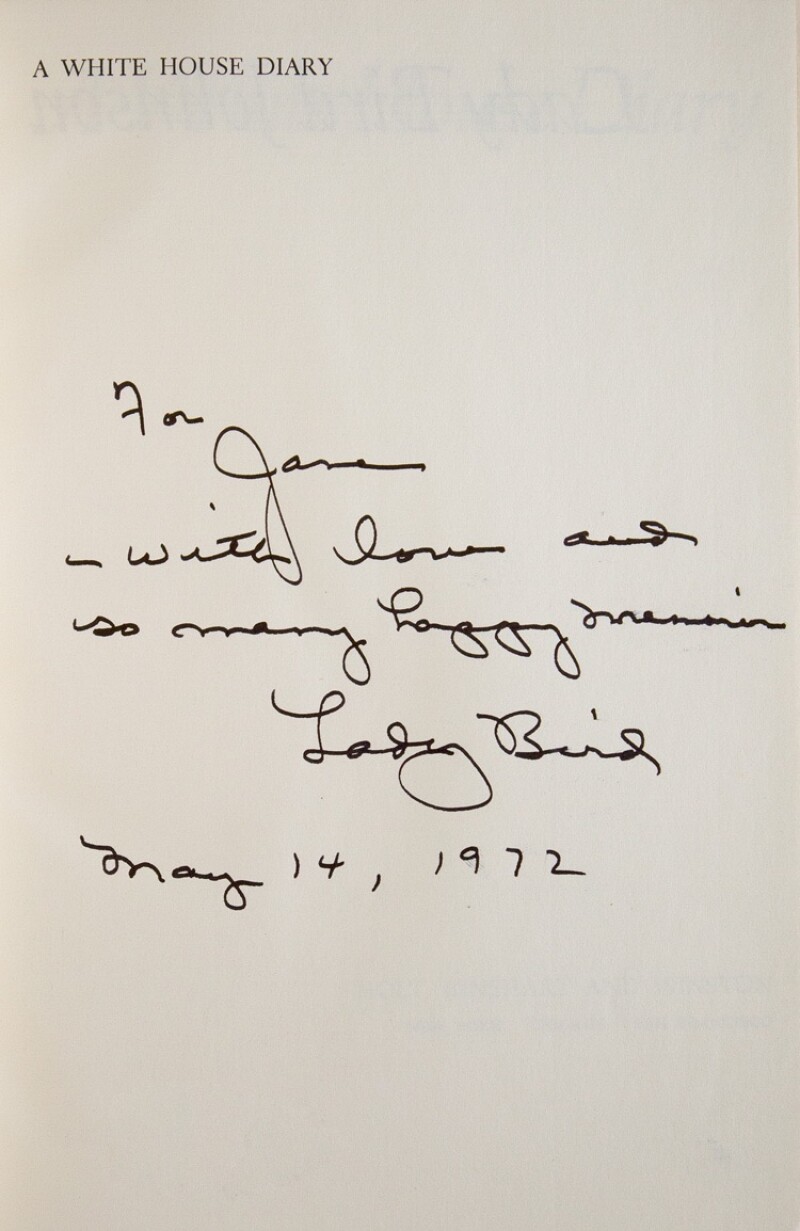 A WHITE HOUSE DIARY
For
Jane
– with love and
so many happy memories
Lady Bird
May 14, 1972